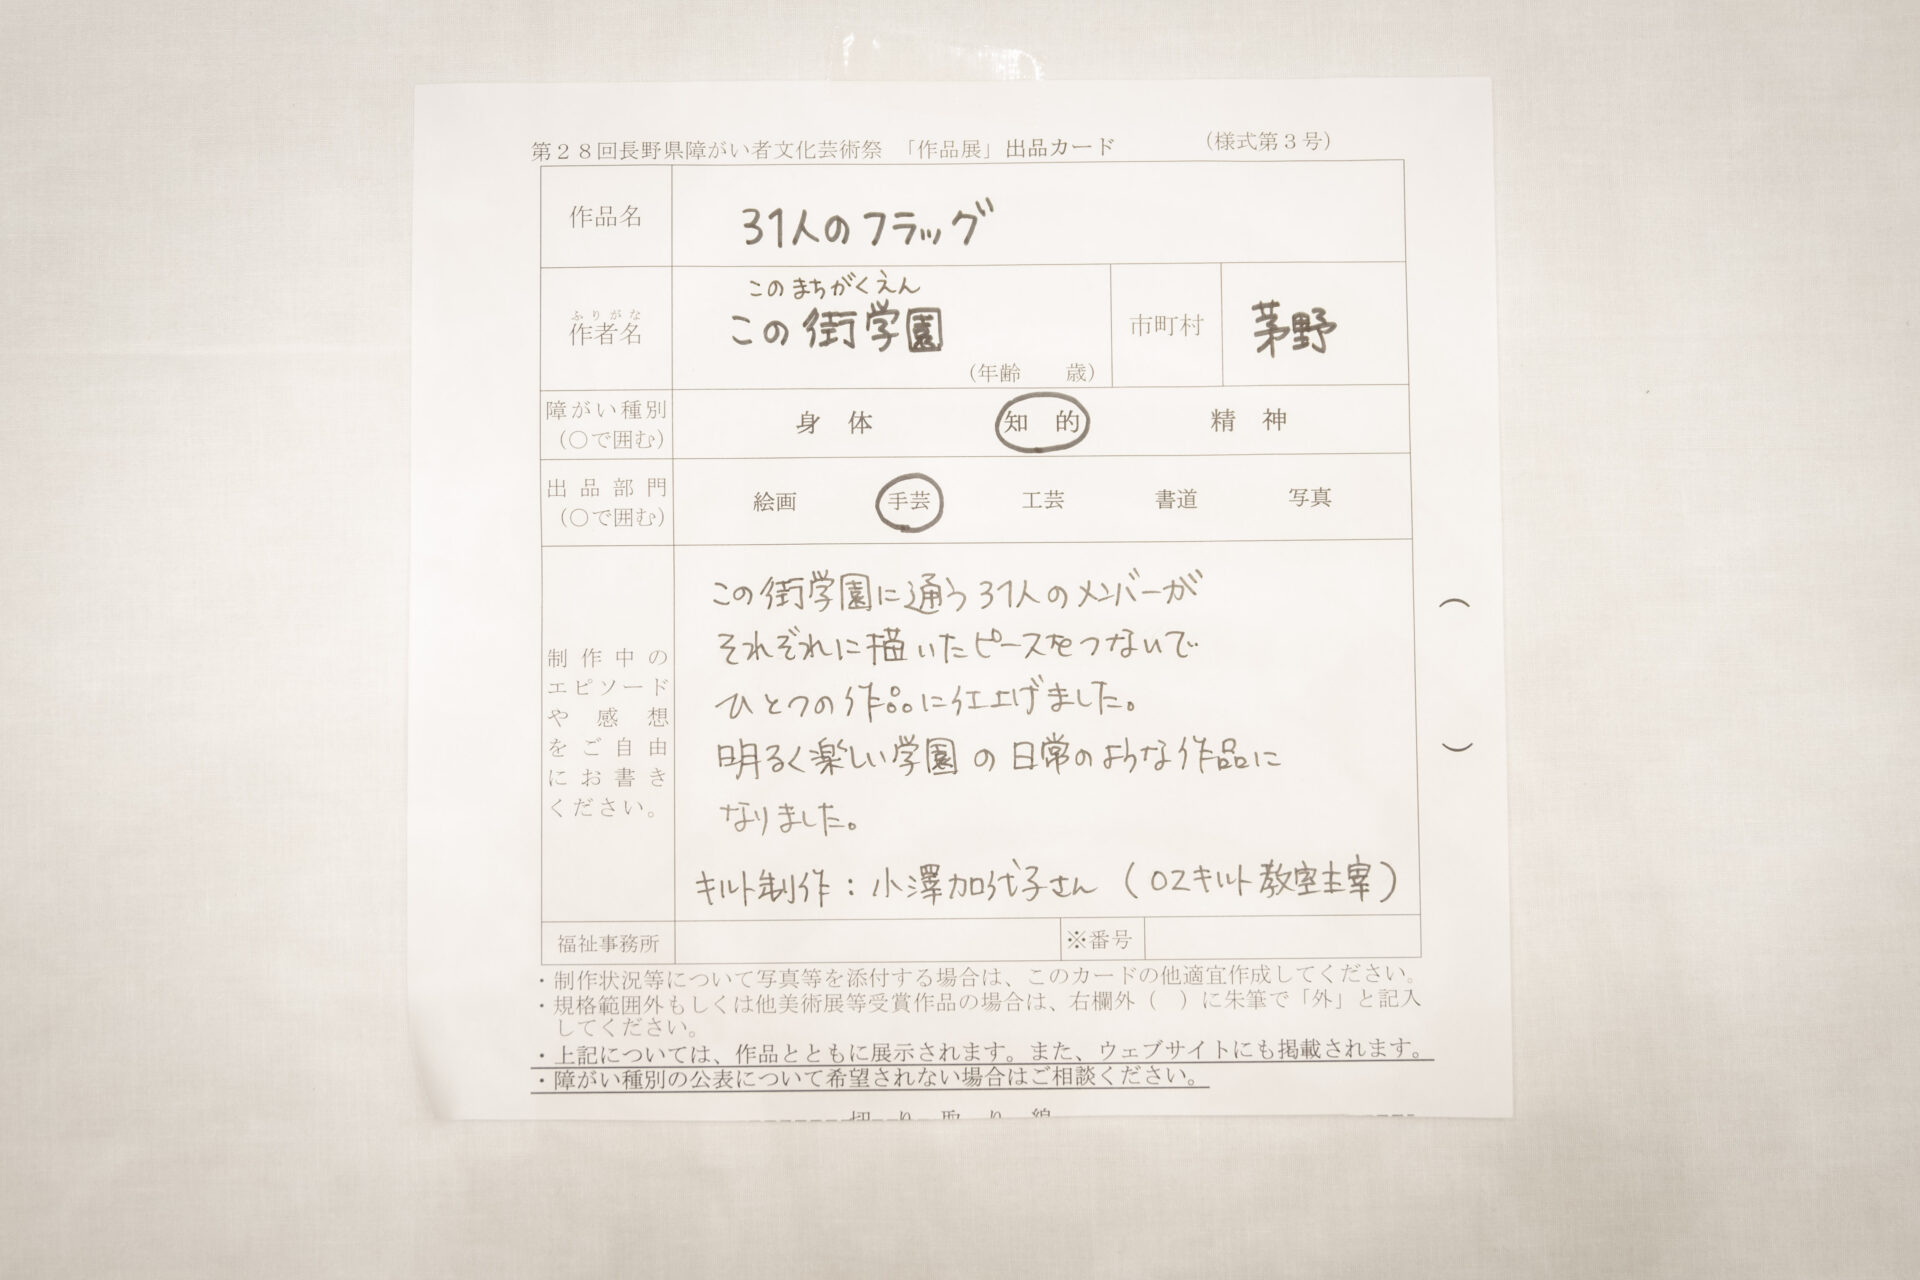 第28回長野県障がい者文化芸術祭 「作品展」出品カード (様式第3号)
作品名
31人のフラッグ
ふりがな
作者名
このまちがくえん
この街学園
(年齢 歳)
市町村
茅野
障がい種別
(○で囲む)
身体 知的 精神
出品部門
(○で囲む)
絵画 手芸 工芸 書道 写真
制作中の
エピソード
や感想
をご自由
にお書き
ください。
この街学園に通う31人のメンバーが
それぞれに描いたピースをつないで
ひとつの作品に仕上げました。
明るく楽しい学園の日常のような作品に
なりました。
キルト制作：小澤加代子さん（OZキルト教室主宰）
福祉事務所
※番号
・制作状況等について写真等を添付する場合は、このカードの他適宜作成してください。
・規格範囲外もしくは他美術展等受賞作品の場合は、右欄外（ ）に朱筆で「外」と記入
してください。
・上記については、作品とともに展示されます。また、ウェブサイトにも掲載されます。
・障がい種別の公表について希望されない場合はご相談ください。
切り取り線